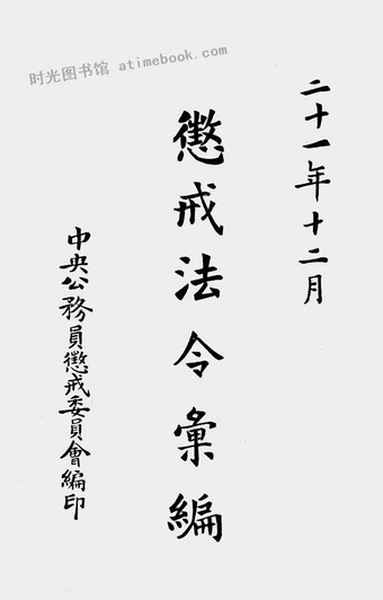 时光图书馆 atimebook.com
二十一年十二月
懲戒法令彙編
中央公務員懲戒委員會編印